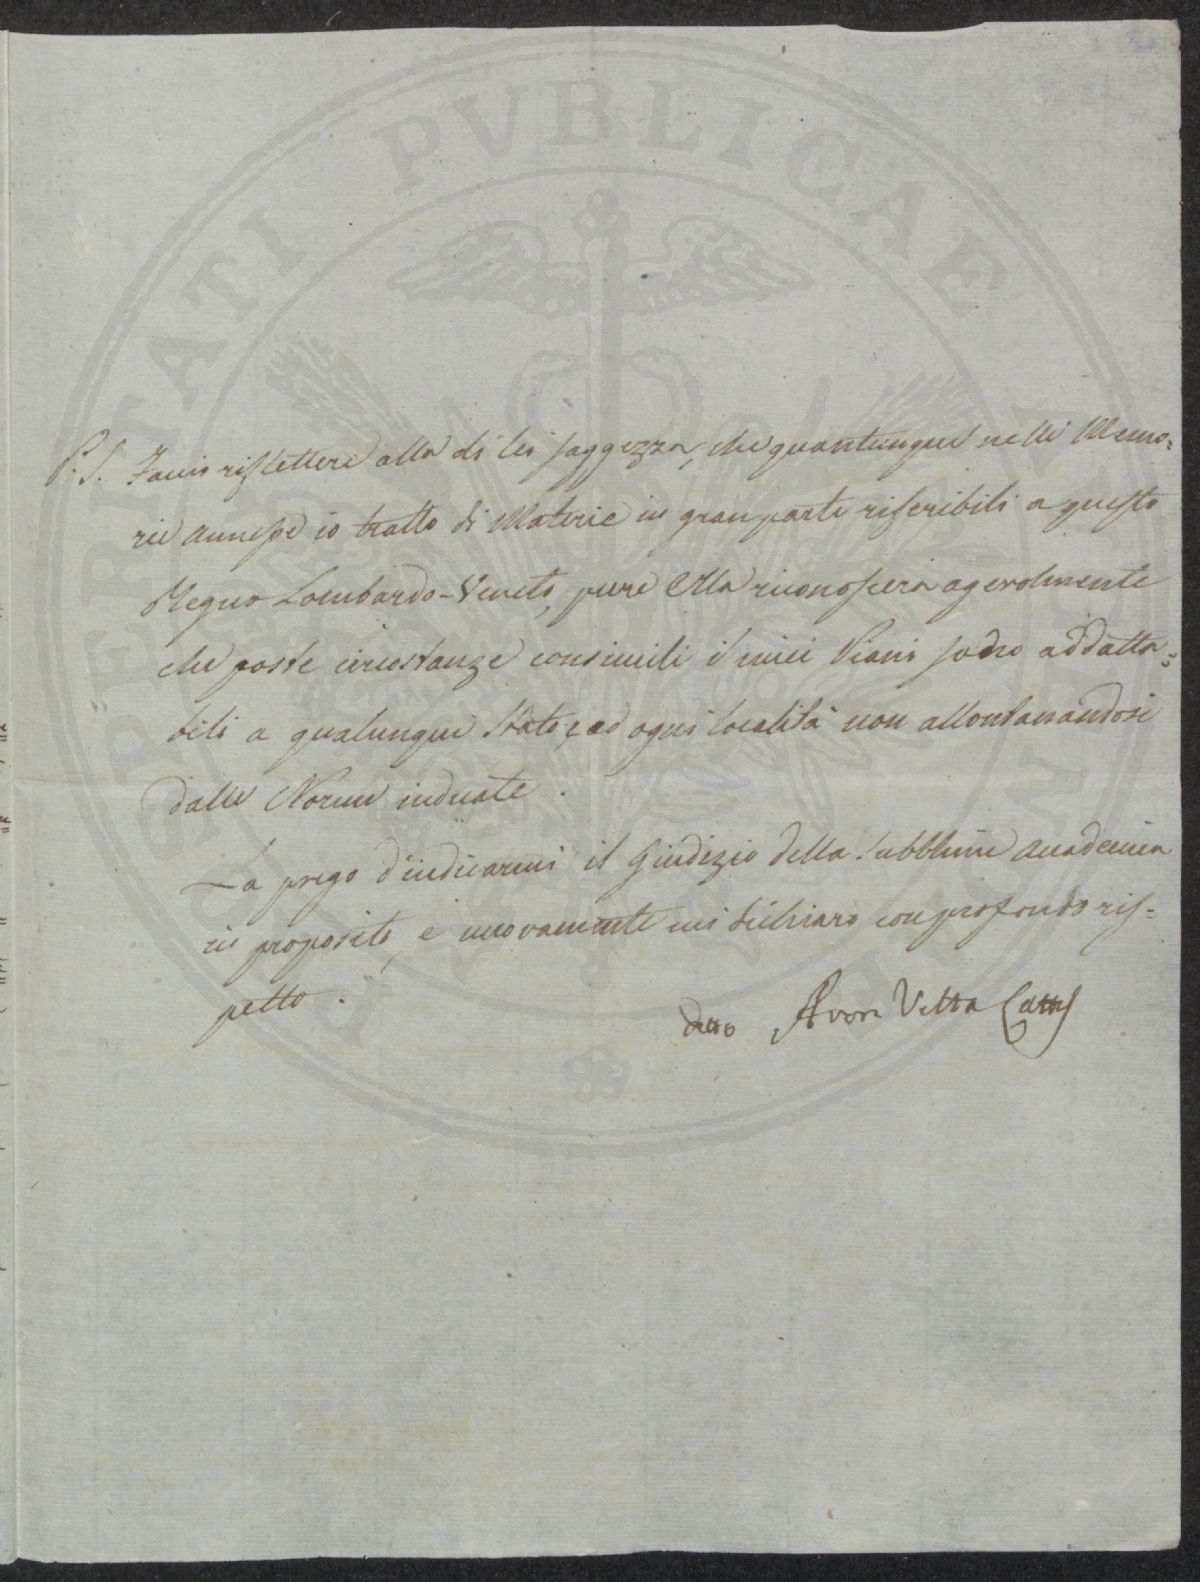 PROSPERITATI PVBLICAE
P. S. Faccio riflettere alla di lei saggezza, che quantunque nelle Memo=
rie annesse io tratto di Materie in gran parte riferibili a questo
Regno Lombardo-Veneto, pure Ella riconoscerà agevolmente
che poste circostanze consimili i miei Piani sono addatta=
bili a qualunque Stato, ad ogni località non allontanandosi
dalle Norme indicate.
La prego d'indicarmi il Giudizio della Subblime Accademia
in proposito, e nuovamente mi dichiaro con profondo ris=
petto.
detto Aron Vitta